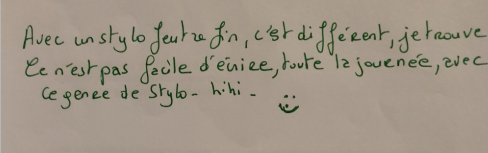 Avec un stylo feutre fin, c'est différent, je trouve
Ce n'est pas facile d'écrire, toute la journée, avec
ce genre de stylo - hihi -